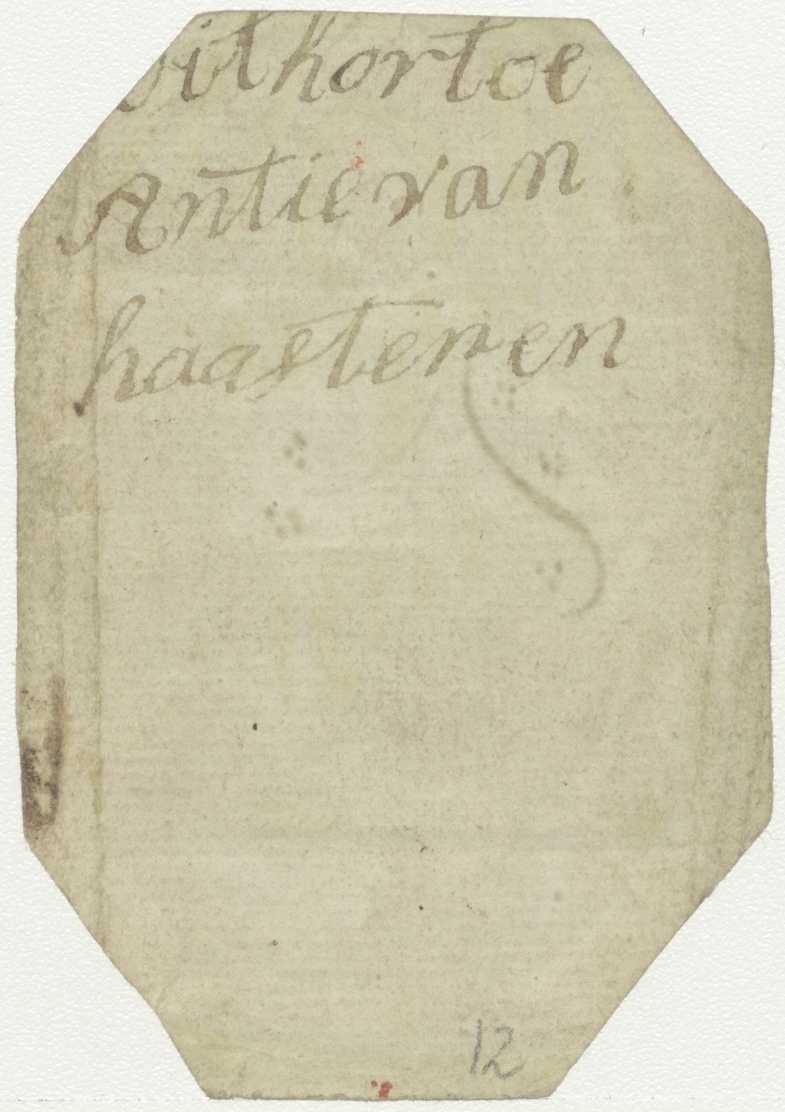 dithortoe
Antie van
haasteren
12